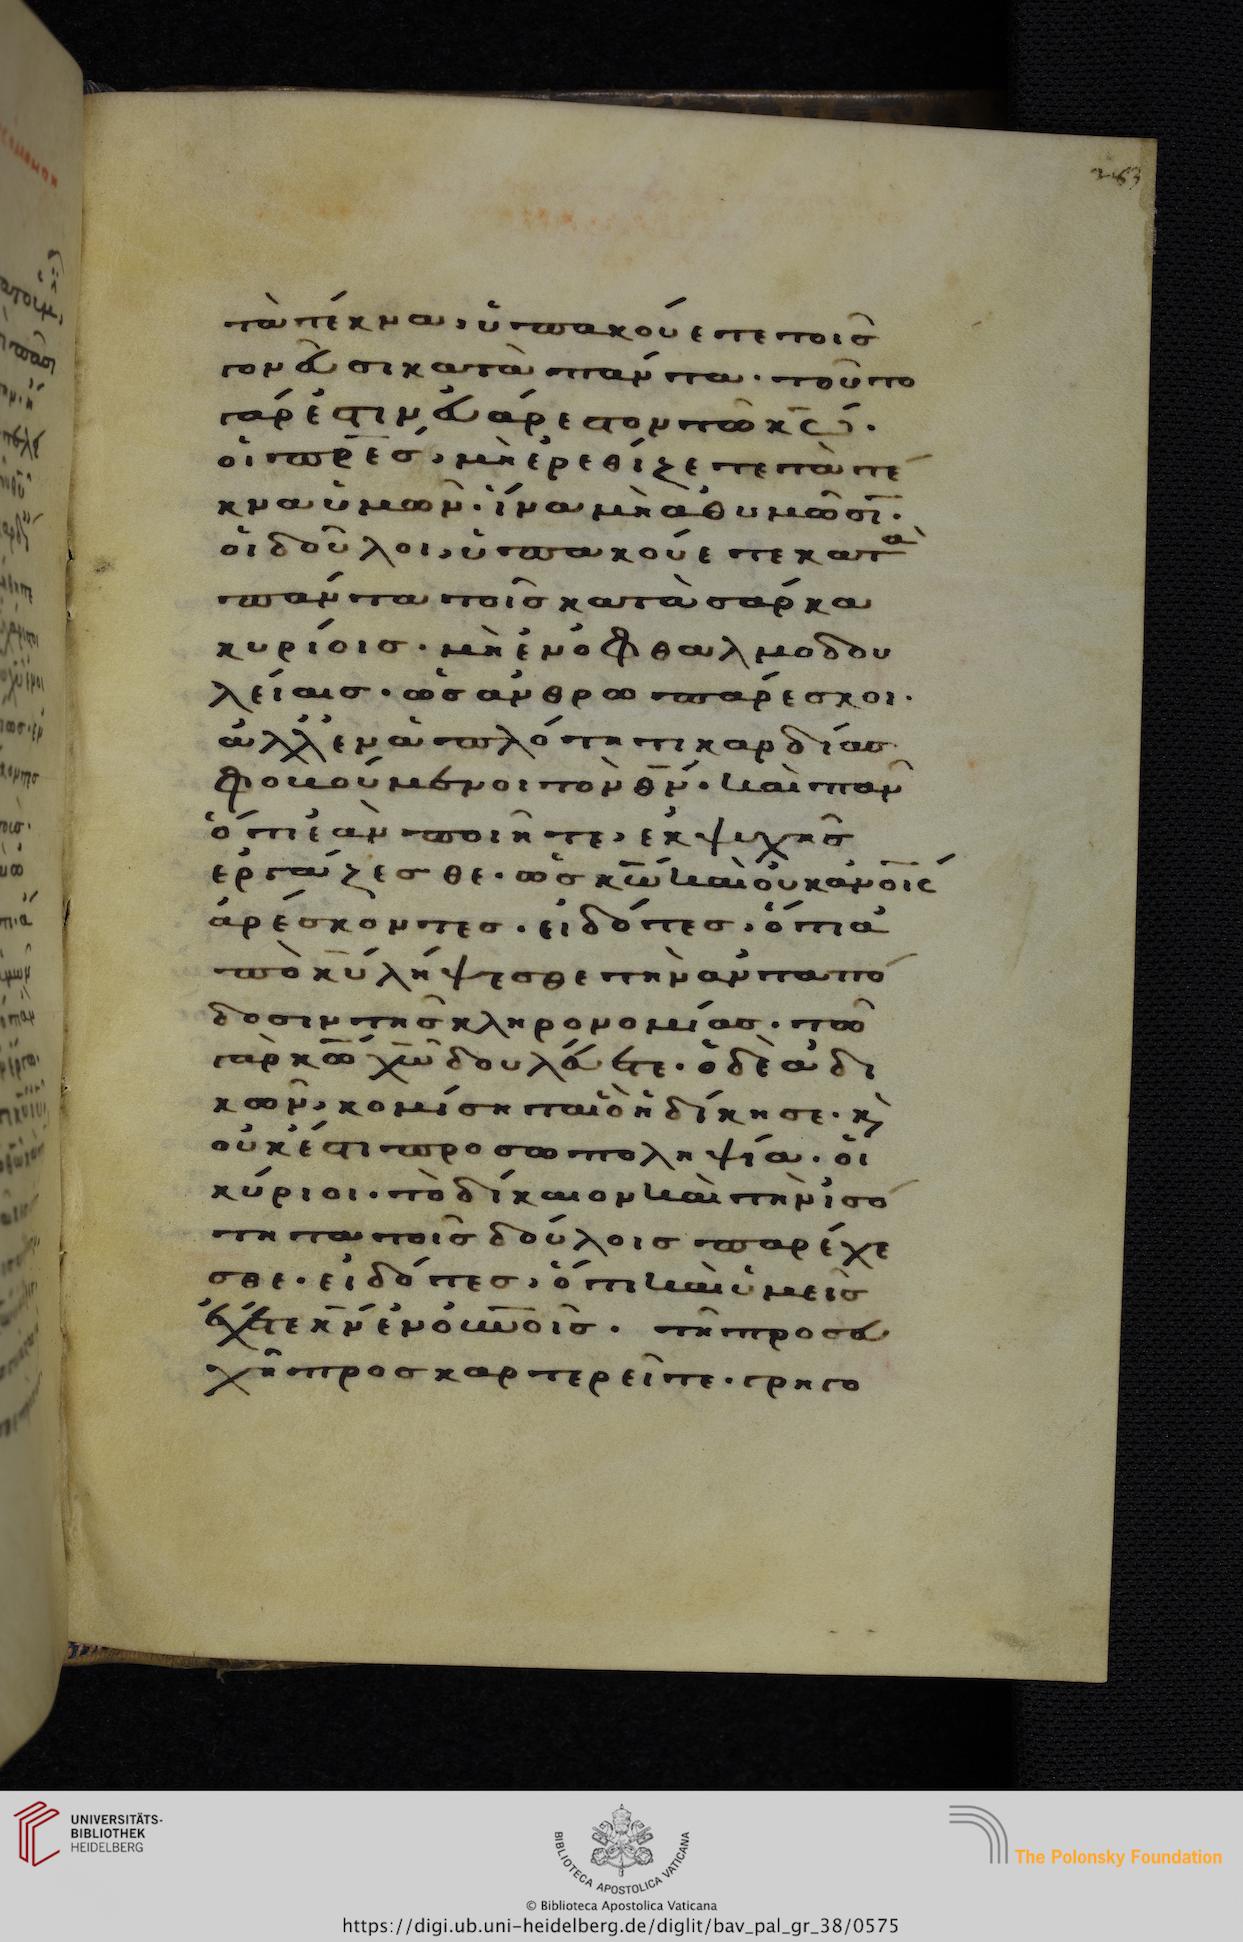 263
τὰ τέκνα, ὑπακούετε τοῖς
γονεῦσι κατὰ πάντα· τοῦτο
γάρ ἐστιν εὐάρεστον τῶ κ̅ω̅·
οἱ π̅ρ̅ε̅ς, μὴ ἐρεθίζετε τὰ τέ
κνα ὑμῶν· ἵνα μὴ ἀθυμῶσι̅·
οἱ δοῦλοι, ὑπακούετε κατὰ
πάντα τοῖς κατὰ σάρκα
κυρίοις· μὴ ἐν ὀφθαλμοδου
λείαις· ὡς ἀνθρωπάρεσκοι·
ἀλλ' ἐν ἁπλότητι καρδίας
φοβούμενοι τὸν θ̅ν̅· καὶ πᾶν
ὅτι ἐὰν ποιῆτε, ἐκ ψυχῆς
εργάζεσθε· ὡς κ̅ω̅ καὶ οὐκ α̅ν̅ο̅ις
ἀρέσκοντες· εἰδότες, ὅτι ἀ
πὸ κ̅υ̅ λήψεσθε τὴν ἀνταπό
δοσιν τῆς κληρονομίας· τῶ
γὰρ κ̅ω̅ χ̅ω̅ δουλεύετε· ὁ δὲ ἀδι
κῶν, κομίσηται ὃ ἠδίκησε· κ̀
οὐκ ἔστι προσωποληψία· οἱ
κύριοι· τὸ δίκαιον καὶ τὴν ἰσό
τητα τοῖς δούλοις παρέχε
σθε· εἰδότες, ὅτι καὶ ὑμεῖς
ἔχετε κ̅ν̅ ἐν ο̅υ̅ν̅οῖς· τῆ προσευ
χῆ προσκαρτερεῖτε· γρηγο
UNIVERSITÄTS-
BIBLIOTHEK
HEIDELBERG
BIBLIOTECA APOSTOLICA VATICANA
The Polonsky Foundation
© Biblioteca Apostolica Vaticana
https://digi.ub.uni-heidelberg.de/diglit/bav_pal_gr_38/0575